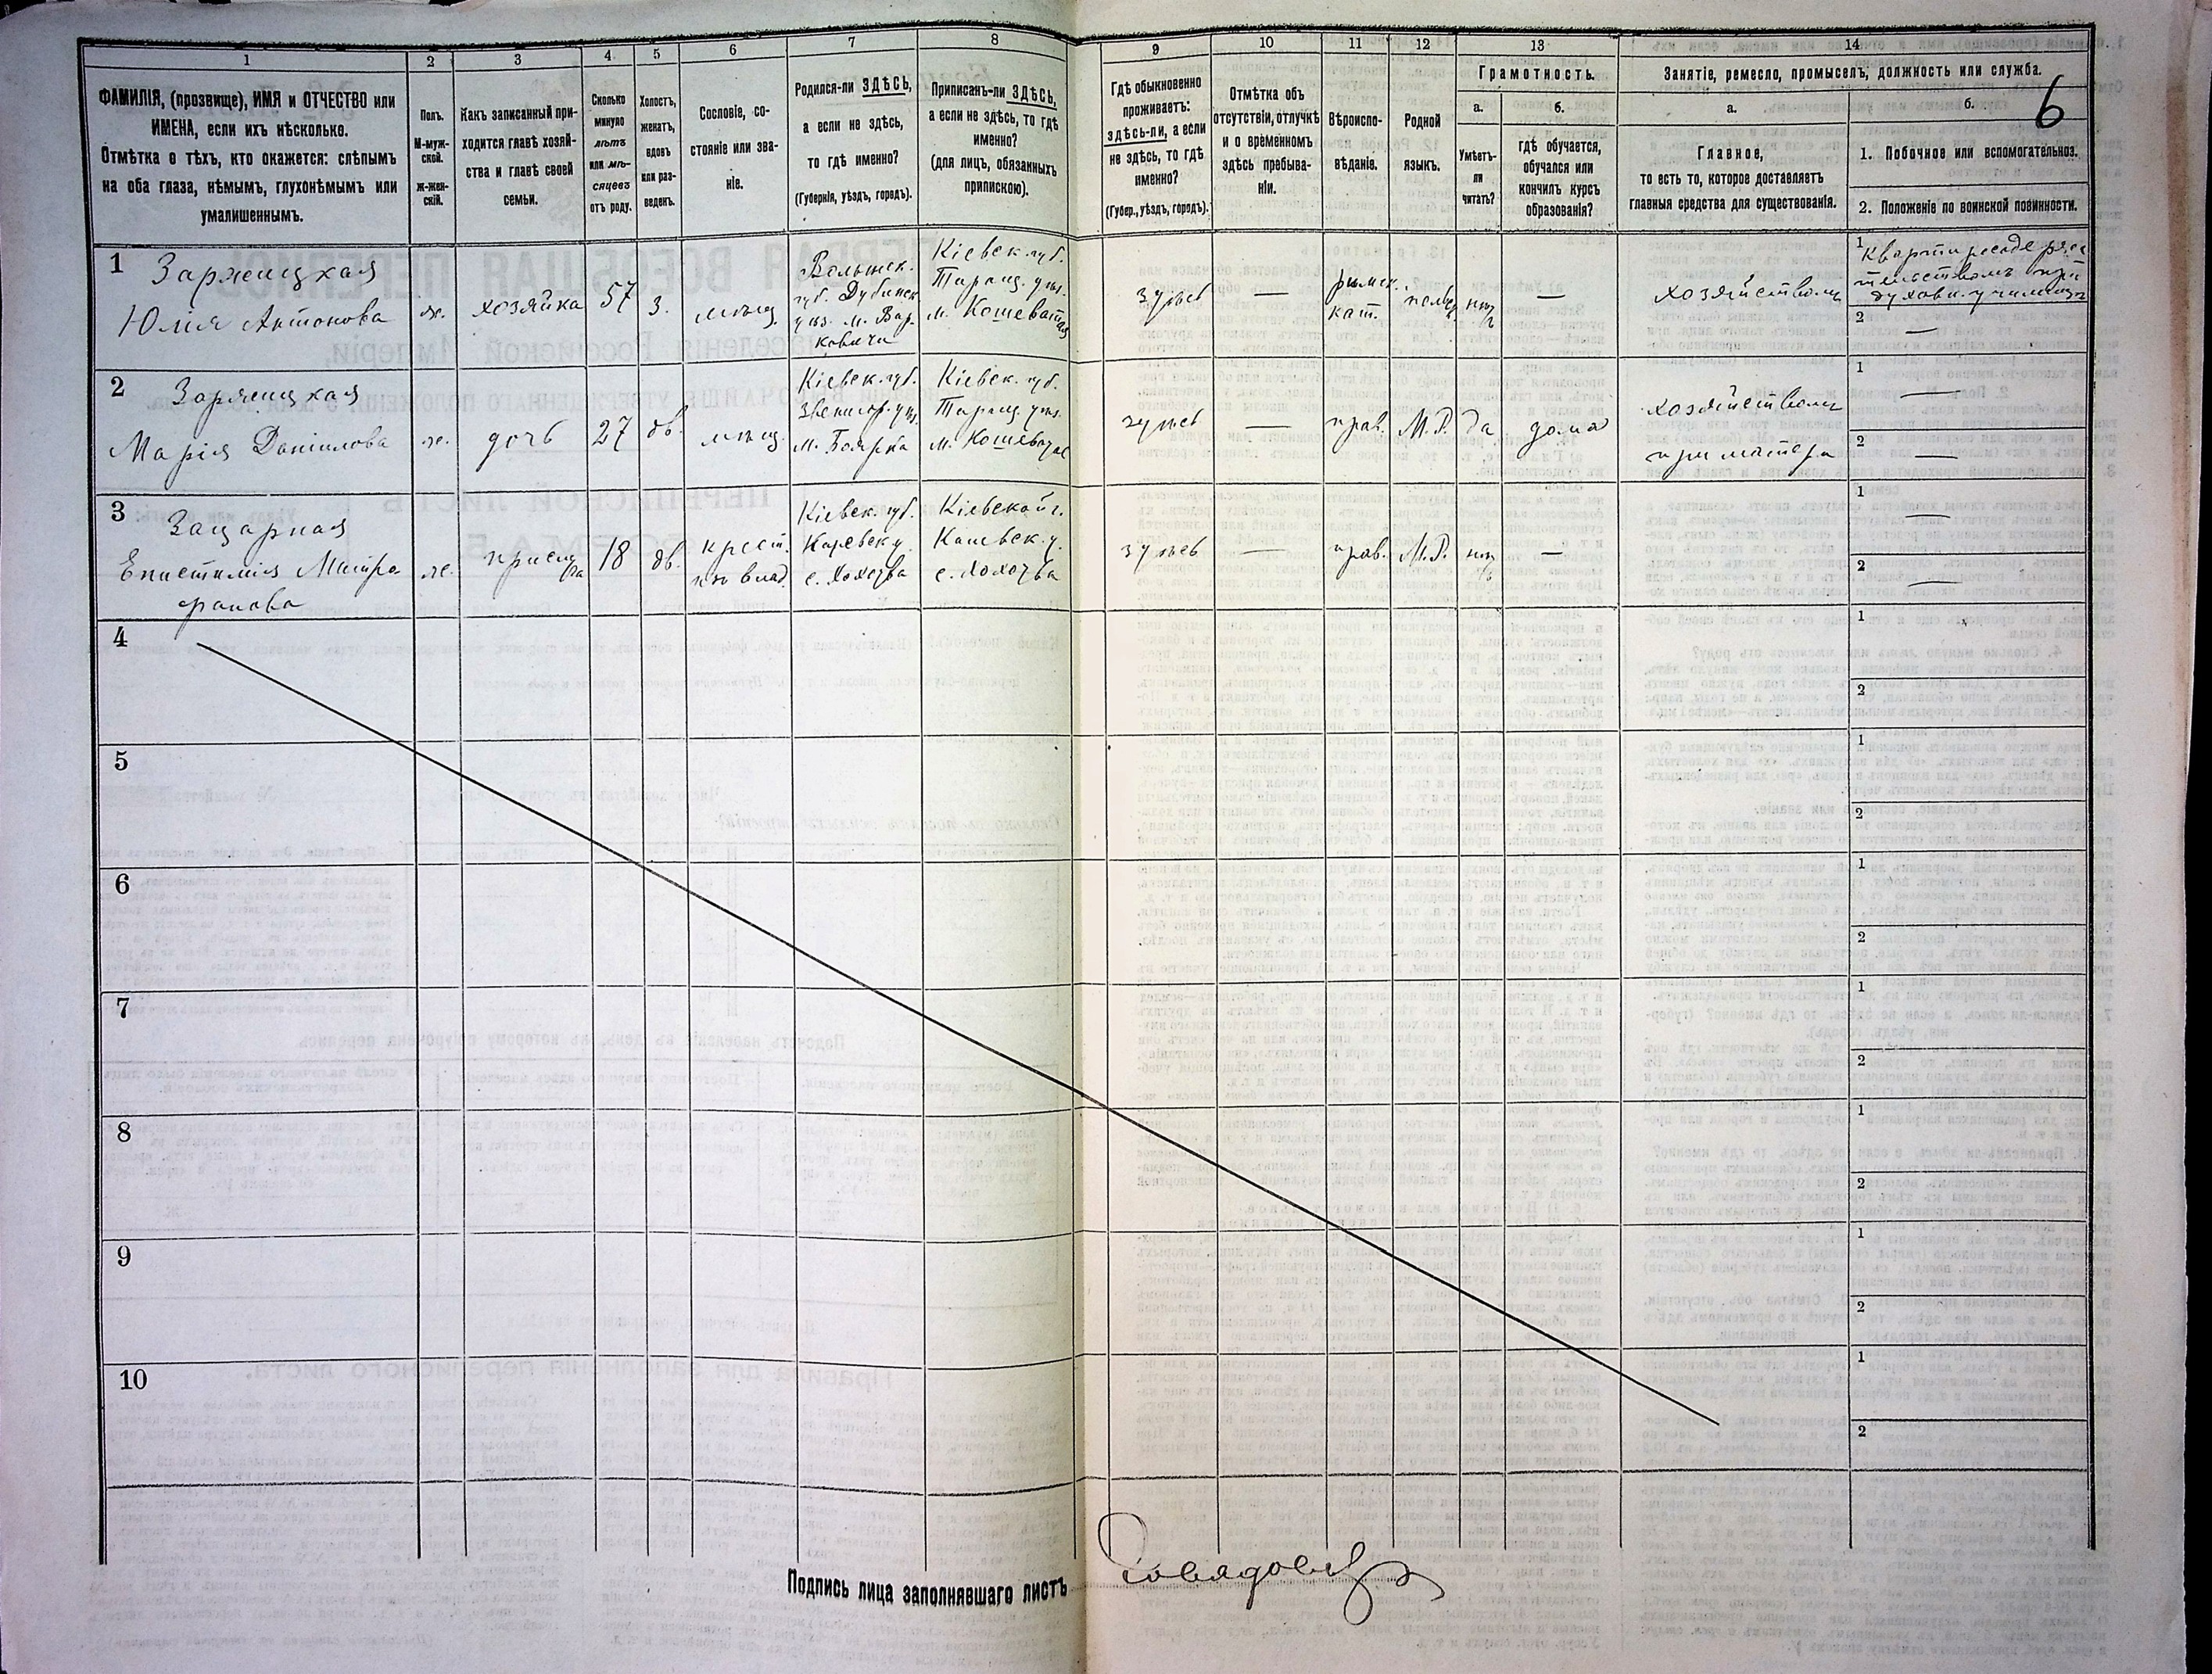 1
2
3
4
5
6
7
8
9
10
11
12
13
14
ФАМИЛІЯ, (прозвище), ИМЯ и ОТЧЕСТВО или
ИМЕНА, если ихъ нѣсколько.
Отмѣтка о тѣхъ, кто окажется: слѣпымъ
на оба глаза, нѣмымъ, глухонѣмымъ или
умалишеннымъ.
Полъ.
М-муж-
ской.
ж-жен-
скій.
Какъ записанный при-
ходится главѣ хозяй-
ства и главѣ своей
семьи.
Сколько
минуло
лѣтъ
или мѣ-
сяцевъ
отъ роду.
Холостъ,
женатъ,
вдовъ
или раз-
веденъ.
Сословіе, со-
стояніе или зва-
ніе.
Родился-ли ЗДѢСЬ,
а если не здѣсь,
то гдѣ именно?
(Губернія, уѣздъ, городъ).
Приписанъ-ли ЗДѢСЬ,
а если не здѣсь, то гдѣ
именно?
(для лицъ, обязанныхъ
припискою).
Гдѣ обыкновенно
проживаетъ:
здѣсь-ли, а если
не здѣсь, то гдѣ
именно?
(Губер., уѣздъ, городъ).
Отмѣтка объ
отсутствіи, отлучкѣ
и о временномъ
здѣсь пребыва-
ніи.
Вѣроиспо-
вѣданіе.
Родной
языкъ.
Грамотность.
а.
б.
Умѣетъ-
ли
читать?
гдѣ обучается,
обучался или
кончилъ курсъ
образованія?
Занятіе, ремесло, промыселъ, должность или служба.
а.
б.
6
Главное,
то есть то, которое доставляетъ
главныя средства для существованія.
1. Побочное или вспомогательноз.
2. Положеніе по воинской повинности.
1
Заржецкая
Юлія Антонова
ж.
хозяйка
57
з.
мѣщ.
Волынск.
губ. Дубенск
уѣз. м. Вар-
ковичи
Кіевск. губ.
Таращ. уѣз.
м. Кошеватая
здѣсь
—
римск.
кат.
польс.
нѣтъ
—
хозяйствомъ
1
2
—
2
Заржецкая
Марія Даніилова
ж.
дочь
27
дв.
мѣщ.
Кіевск. губ.
Звениг. уѣз.
м. Боярка
Кіевск. губ.
Таращ. уѣз.
м. Кошеватая
здѣсь
—
прав.
М.Р.
да
дома
хозяйствомъ
при матери
1
—
2
—
3
Зацарная
Епистимія Митро
фанова
ж.
прислуга
18
дв.
крест.
изъ влад.
Кіевск. губ.
Каневск у.
с. Хохотва
Кіевской г.
Каневск. у.
с. Хохотва
здѣсь
—
прав.
М.Р.
нѣтъ
—
1
—
2
—
4
1
2
5
1
2
6
1
2
7
1
2
8
1
2
9
1
2
10
1
2
Подпись лица заполнявшаго листъ